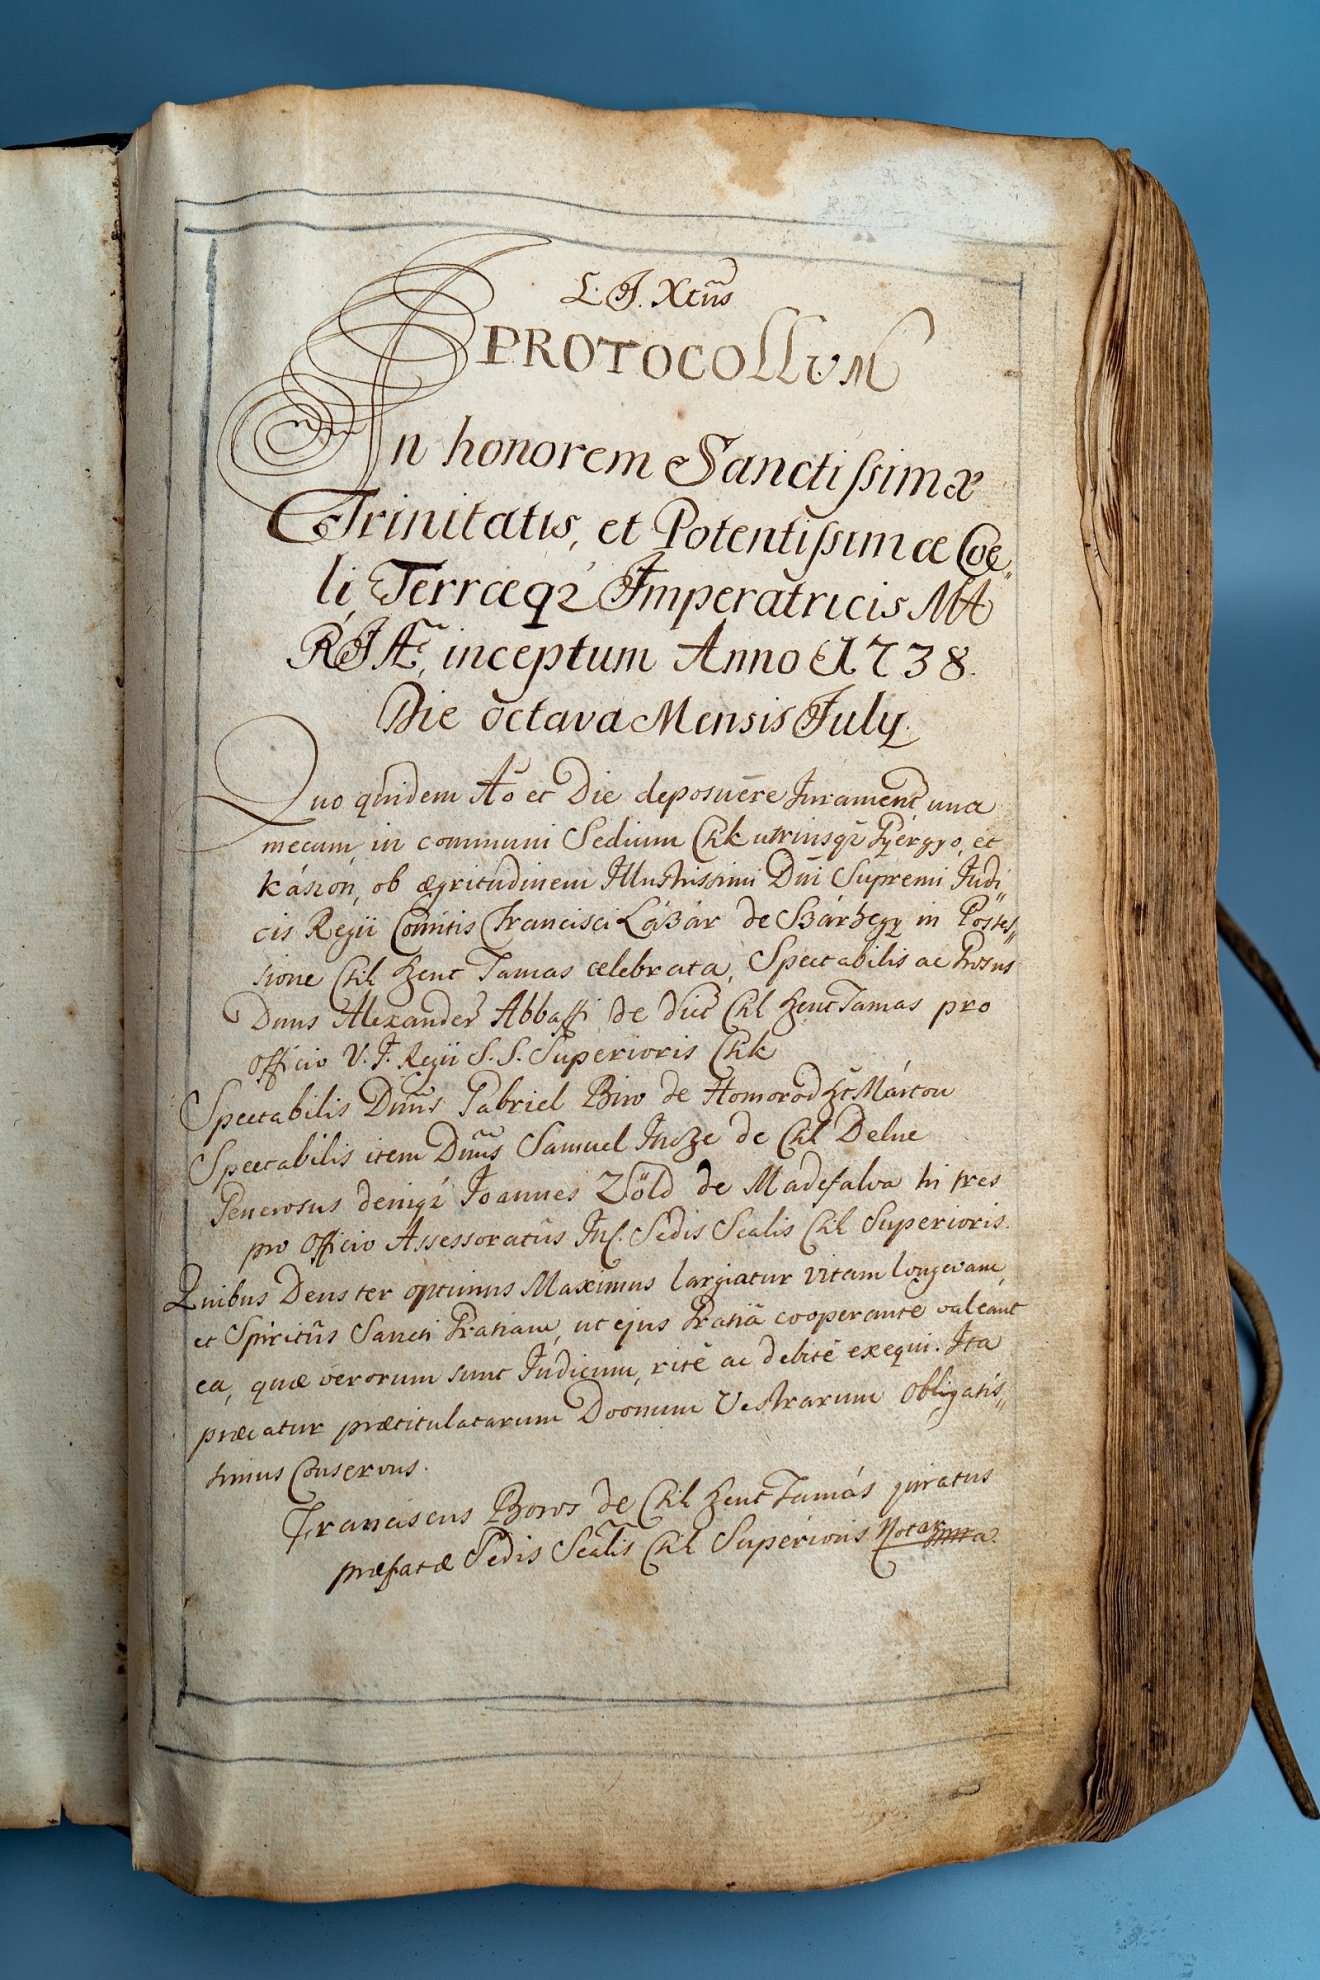 L. J. Xtũs
PROTOCOLLVM
In honorem Sanctissimæ
Trinitatis, et Potentissimæ Coe„
li, Terræq₃ Imperatricis MA
RIÆ, inceptum Anno 1738.
Die octava Mensis July.
Quo quidem Aõ et Die deposuēre Jurament̄ una
mecum, in communi Sedium Chik utriusq₃ Gyergyo, et
Kászon, ob ægritudinem Illustrissimi Dñi Supremi Judi„
cis Regii Comitis Francisci Lázár de Szárhegy in Posses„
sione Chik Szent Tamas celebrata, Spectabilis ac
Dnus Alexander Abbaffi de dict̄ Chik SzentTamas pro
Officio V. J. Regii S. S. Superioris Chik
Spectabilis Dñus Gabriel Biro de Homorod Szt̄Márton
Spectabilis item Dñus Samuel de Chik Delne
Generosus deniq₃ Joannes Zöld de Madefalva hi tres
pro Officio Assessoratûs Inc. Sedis Scalis Chik Superioris.
Quibus Deus ter optimus Maximus largiatur vitam longævam,
et Spiritûs Sancti Gratiam, ut ejus Gratiâ cooperante valeant
ea, quæ verorum sunt Judicum, ritè ac debitè exequi. Ita
præcatur prætitulatarum Doonum Vestrarum obligatis„
simus Conservus.
Franciscus Boros de Chik SzentTamás juratus
præfatæ Sedis Scalis Chik Superioris Notar